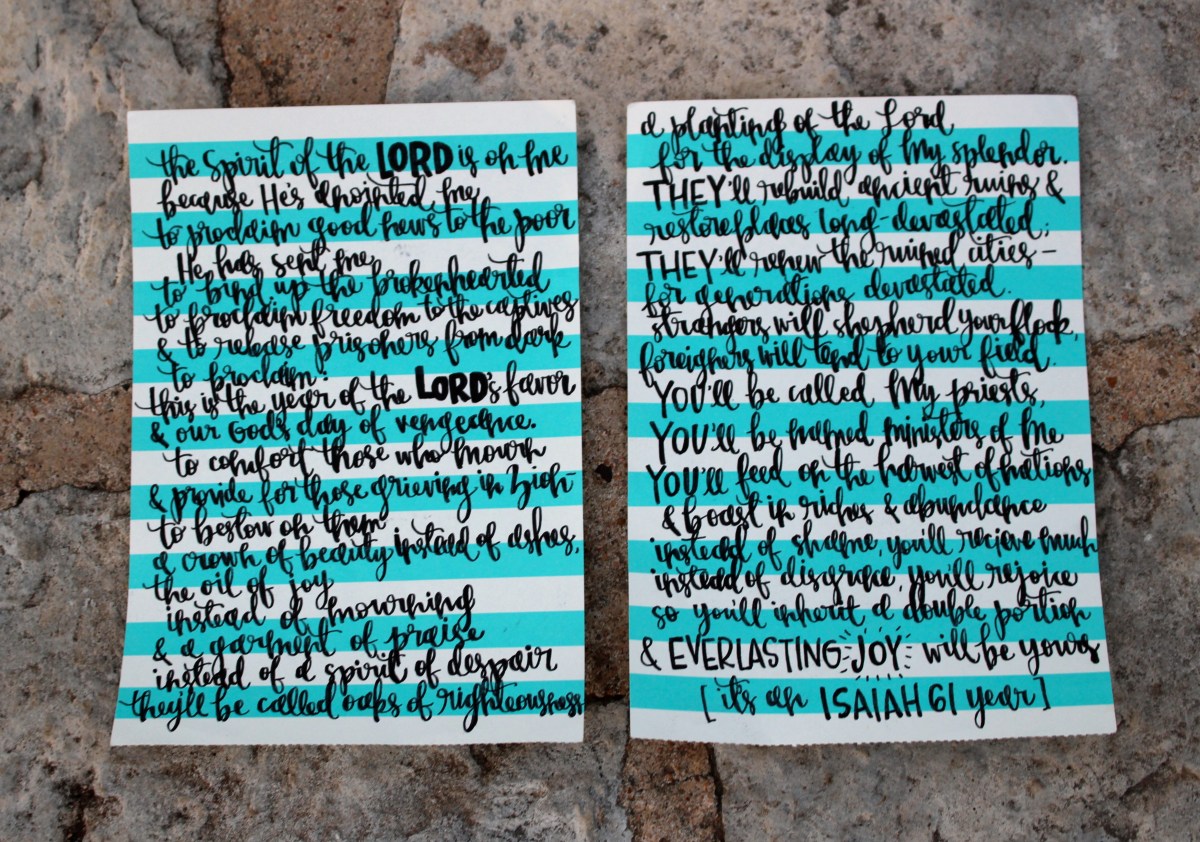 the Spirit of the LORD is on me
because He's anointed me
to proclaim good news to the poor
He has sent me
to bind up the brokenhearted
to proclaim freedom to the captives
& to release prisoners from dark
to proclaim:
this is the year of the LORD's favor
& our God's day of vengeance.
to comfort those who mourn
& provide for those grieving in Zion-
to bestow on them
a crown of beauty instead of ashes,
the oil of joy
instead of mourning
& a garment of praise
instead of a spirit of despair
they'll be called oaks of righteousness
a planting of the Lord
for the display of My splendor.
THEY'll rebuild ancient ruins &
restore places long-devastated;
THEY'll renew the ruined cities -
for generations devastated.
strangers will shepherd your flock,
foreigners will tend to your field.
YOU'll be called My priests,
YOU'll be named ministers of me
YOU'll feed on the harvest of nations
& boast in riches & abundance
instead of shame, you'll recieve much
instead of disgrace, you'll rejoice
so you'll inherit a double portion
& EVERLASTING JOY will be yours
[it's an ISAIAH 61 year]